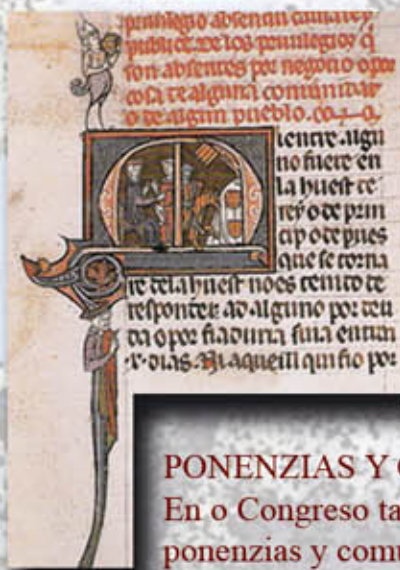 publice. De los priuilegios q
son absentes por negocio o por
cosa de alguna comunidat
o de algun pueblo.
ientre algu
no fuere en
la huest de
rey o de prin
cip o depues
que se torna
re dela huest no es tenito de
responder ad alguno por deu
da o por fiaduria
dias. aqueill qui fio por
PONENZIAS Y
En o Congreso
ponenzias y